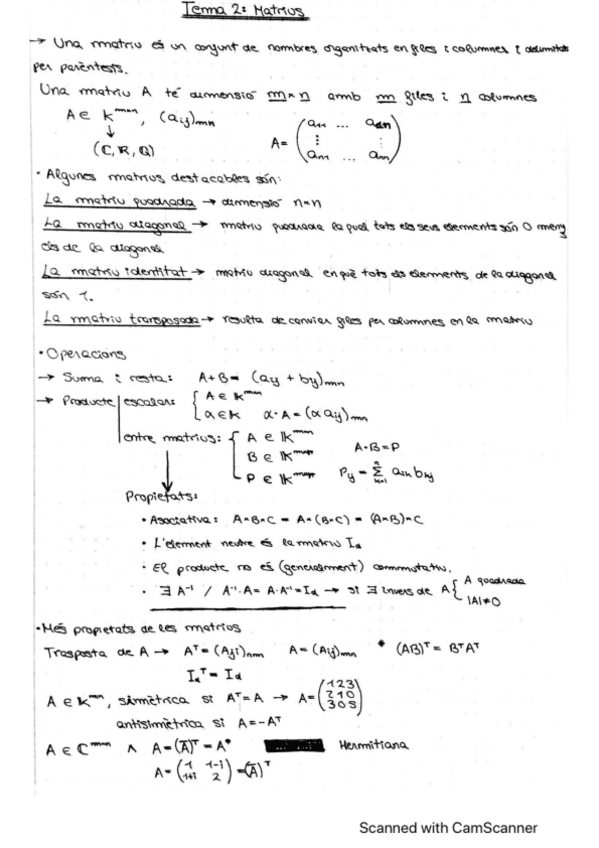 Tema 2: Matrius
→ Una matriu és un conjunt de nombres organitzats en files i columnes i delimitats
per parèntesis.
Una matriu A té dimensió m×n amb m files i n columnes
A ∈ K^{m×n}, (a_ij)_mn
↓
(C, R, Q)
A = (a_11 ... a_1n
⋮ ⋮
a_m1 ... a_mn)
· Algunes matrius destacables són:
La matriu quadrada → dimensió n×n
La matriu diagonal → matriu quadrada la qual tots els seus elements són 0 meny
els de la diagonal
La matriu identitat → matriu diagonal en què tots els elements de la diagonal
són 1.
La matriu transposada → resulta de canviar files per columnes en la matriu
· Operacions
→ Suma i resta: A+B = (a_ij + b_ij)_mn
→ Producte escalar: { A ∈ K^{m×n}
α ∈ K α·A = (α a_ij)_mn
entre matrius: { A ∈ K
B ∈ K
P ∈ K
A·B = P
P_ij = Σ_{k=1}^{n} a_ik b_kj
Propietats:
· Asociativa: A×B×C = A×(B×C) = (A×B)×C
· L'element neutre és la matriu I_d
· El producte no és (generalment) commutatiu.
· ∃ A⁻¹ / A⁻¹·A = A·A⁻¹ = I_d → si ∃ invers de A { A quadrada
|A| ≠ 0
· Més propietats de les matrius
Trasposta de A → Aᵀ = (A_ji)_nm A = (A_ij)_mn * (AB)ᵀ = BᵀAᵀ
I_dᵀ = I_d
A ∈ K^{m×n}, simètrica si Aᵀ = A → A = (1 2 3
2 1 0
3 0 5)
antisimètrica si A = -Aᵀ
A ∈ C ∧ A = (Ā)ᵀ = A* Hermitiana
A = (1 1-i
1+i 2) = (Ā)ᵀ
Scanned with CamScanner